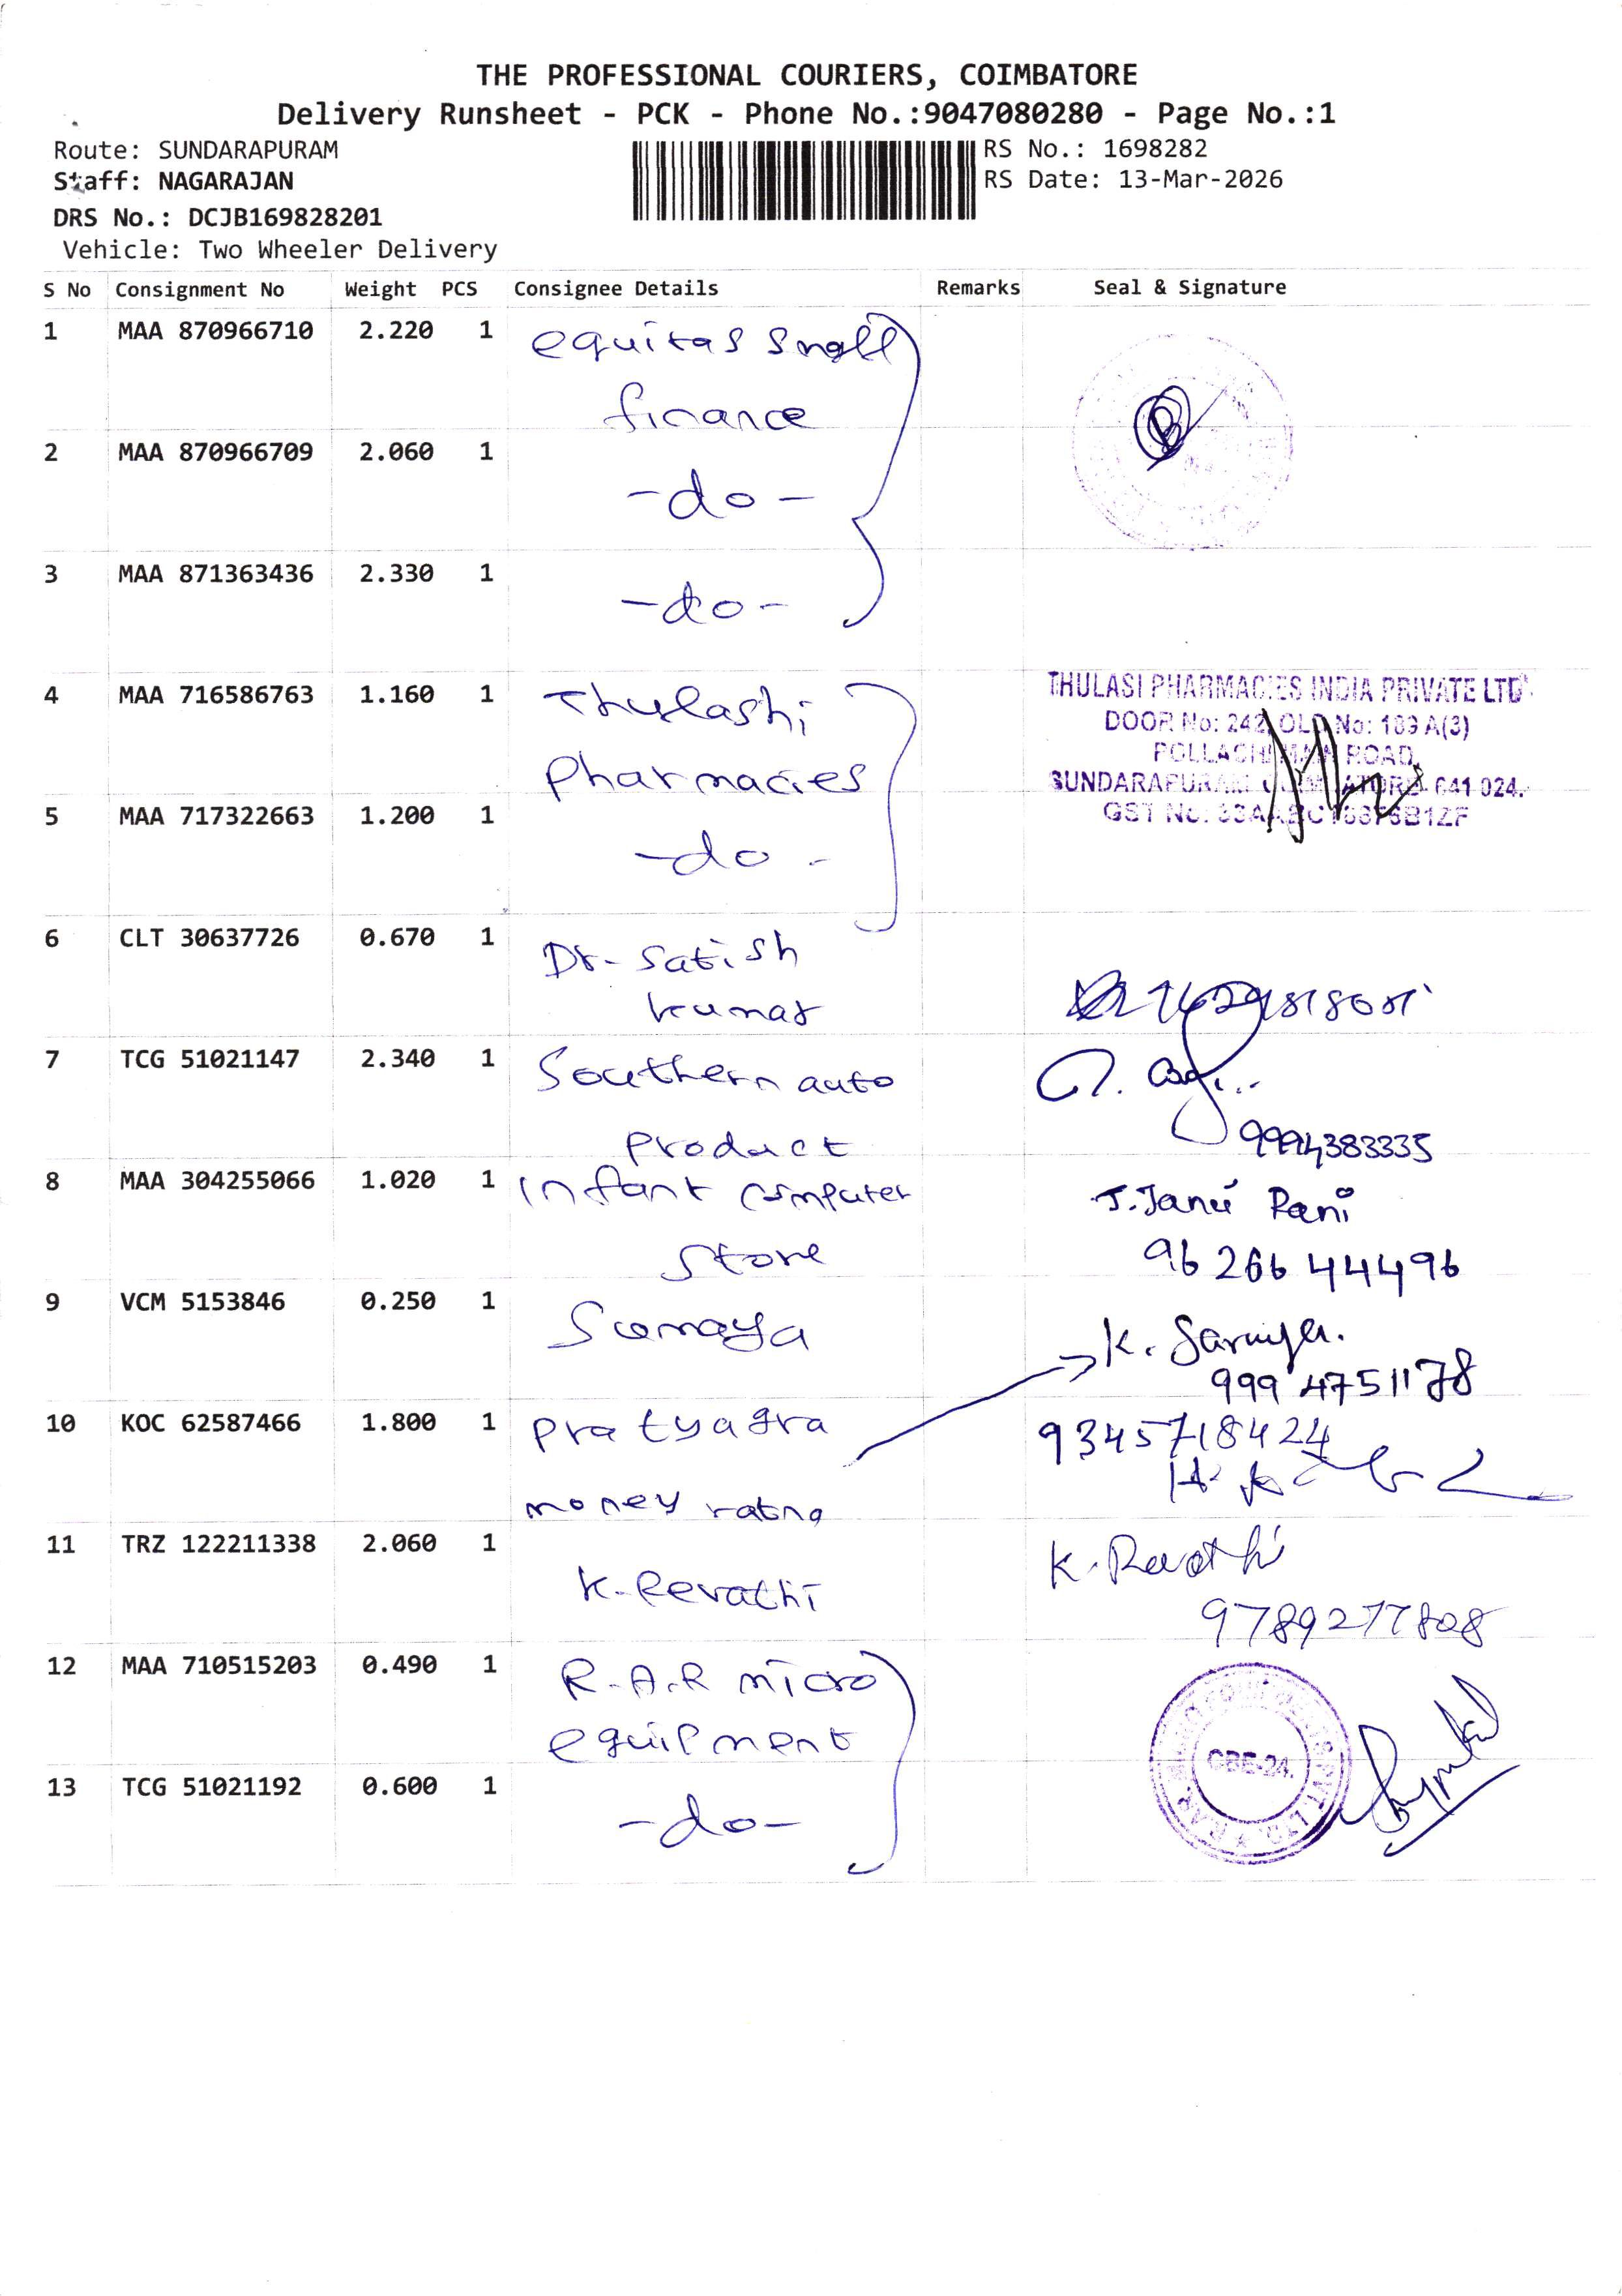 THE PROFESSIONAL COURIERS, COIMBATORE
Delivery Runsheet - PCK - Phone No.:9047080280 - Page No.:1
Route: SUNDARAPURAM
Staff: NAGARAJAN
DRS No.: DCJB169828201
Vehicle: Two Wheeler Delivery
RS No.: 1698282
RS Date: 13-Mar-2026
S No Consignment No Weight PCS Consignee Details Remarks Seal & Signature
1 MAA 870966710 2.220 1 equitas small
finance
2 MAA 870966709 2.060 1
-do-
3 MAA 871363436 2.330 1
-do-
4 MAA 716586763 1.160 1 Thulashi
pharmacies
THULASI PHARMACIES INDIA PRIVATE LTD
DOOR No: 242, OLD No: 189 A(3)
POLLACHI MAIN ROAD,
SUNDARAPURAM 641 024.
GST No:
5 MAA 717322663 1.200 1
-do-
6 CLT 30637726 0.670 1 Dr-Satish
kumar
7 TCG 51021147 2.340 1 Southern auto
product
9994383335
8 MAA 304255066 1.020 1 infant computer
store
J.Jansi Rani
96 266 44496
9 VCM 5153846 0.250 1 Sumaya
K. Saranya.
999 4751178
10 KOC 62587466 1.800 1 pratyagra
money rating
9345718424
11 TRZ 122211338 2.060 1
K-Revathi
K. Revathi
9789277808
12 MAA 710515203 0.490 1 R.A.R micro
equipment
CBE-24.
13 TCG 51021192 0.600 1
-do-